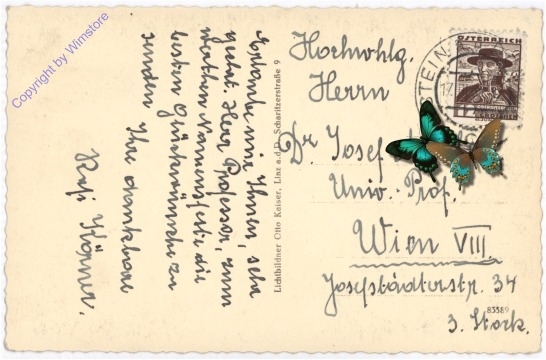 Copyright by Wimstore
Erlaube mir Ihnen, sehr
geehrt. Herr Professor, zum
werthen Namensfeste die
besten Glückwünsche zu
senden Ihre dankbare
Körner.
Lichtbildner Otto Kaiser, Linz a.d.D. Scharitzerstraße 9
Hochwohlg.
Herrn
Dr. Josef
Univ. Prof.
Wien VIII.
Josefstädterstr. 34
3. Stock.
83389
ÖSTERREICH
12
STEIN
17